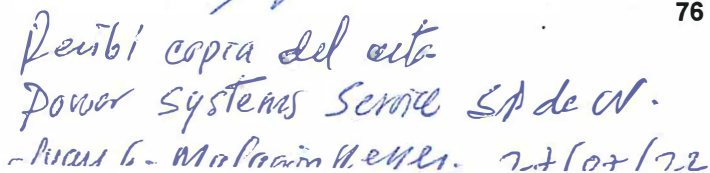 76
Recibí copia del acta
Power Systems Service SA de CV.
27/07/22